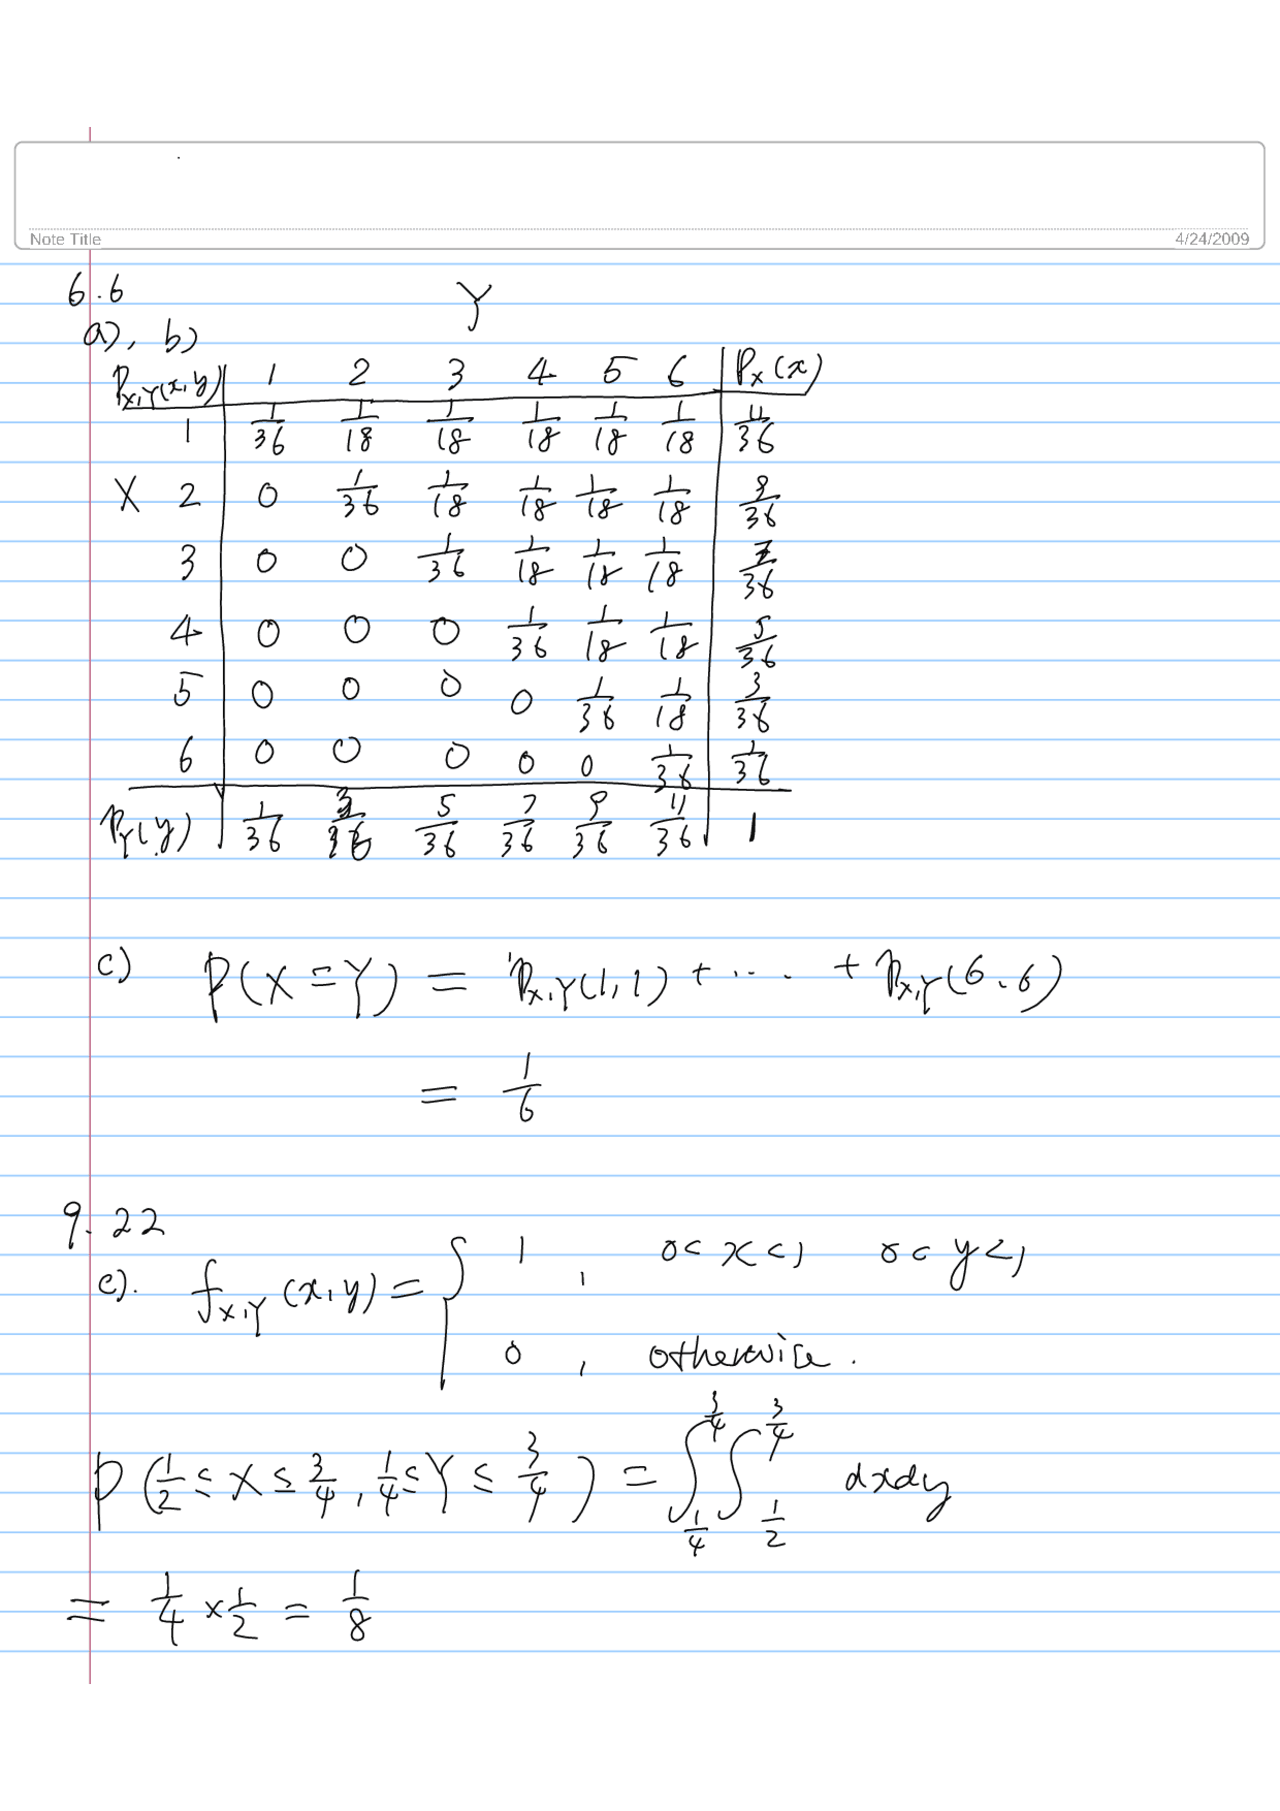 Note Title
4/24/2009
6.6
Y
a), b)
P_{X,Y}(x,y) 1 2 3 4 5 6 P_X(x)
1 1/36 1/18 1/18 1/18 1/18 1/18 11/36
X 2 0 1/36 1/18 1/18 1/18 1/18 9/36
3 0 0 1/36 1/18 1/18 1/18 7/36
4 0 0 0 1/36 1/18 1/18 5/36
5 0 0 0 0 1/36 1/18 3/36
6 0 0 0 0 0 1/36 1/36
P_Y(y) 1/36 3/36 5/36 7/36 9/36 11/36 1
c) P(X=Y) = P_{X,Y}(1,1) + ... + P_{X,Y}(6,6)
= 1/6
9.22
e). f_{X,Y}(x,y) = { 1 , 0<x<1 0<y<1
0 , otherwise.
P(1/2 ≤ X ≤ 3/4, 1/4 ≤ Y ≤ 3/4) = ∫_{1/4}^{3/4} ∫_{1/2}^{3/4} dxdy
= 1/4 × 1/2 = 1/8